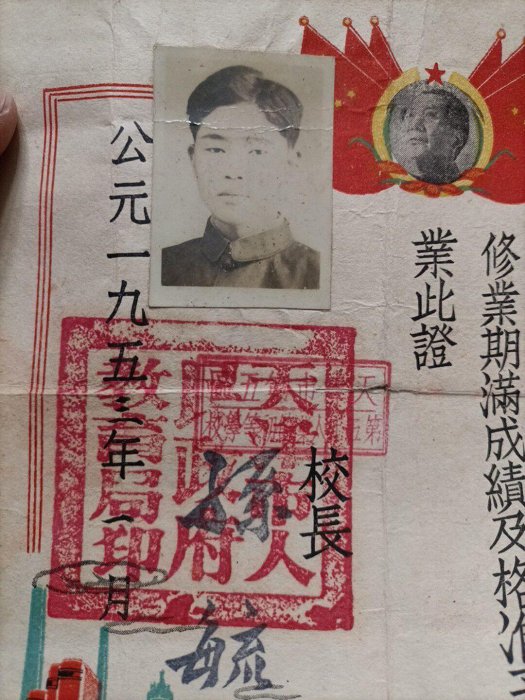 修業期滿成績及格准
業此證
校長
孫毓
公元一九五三年一月
天津市人
民政府
教育局印